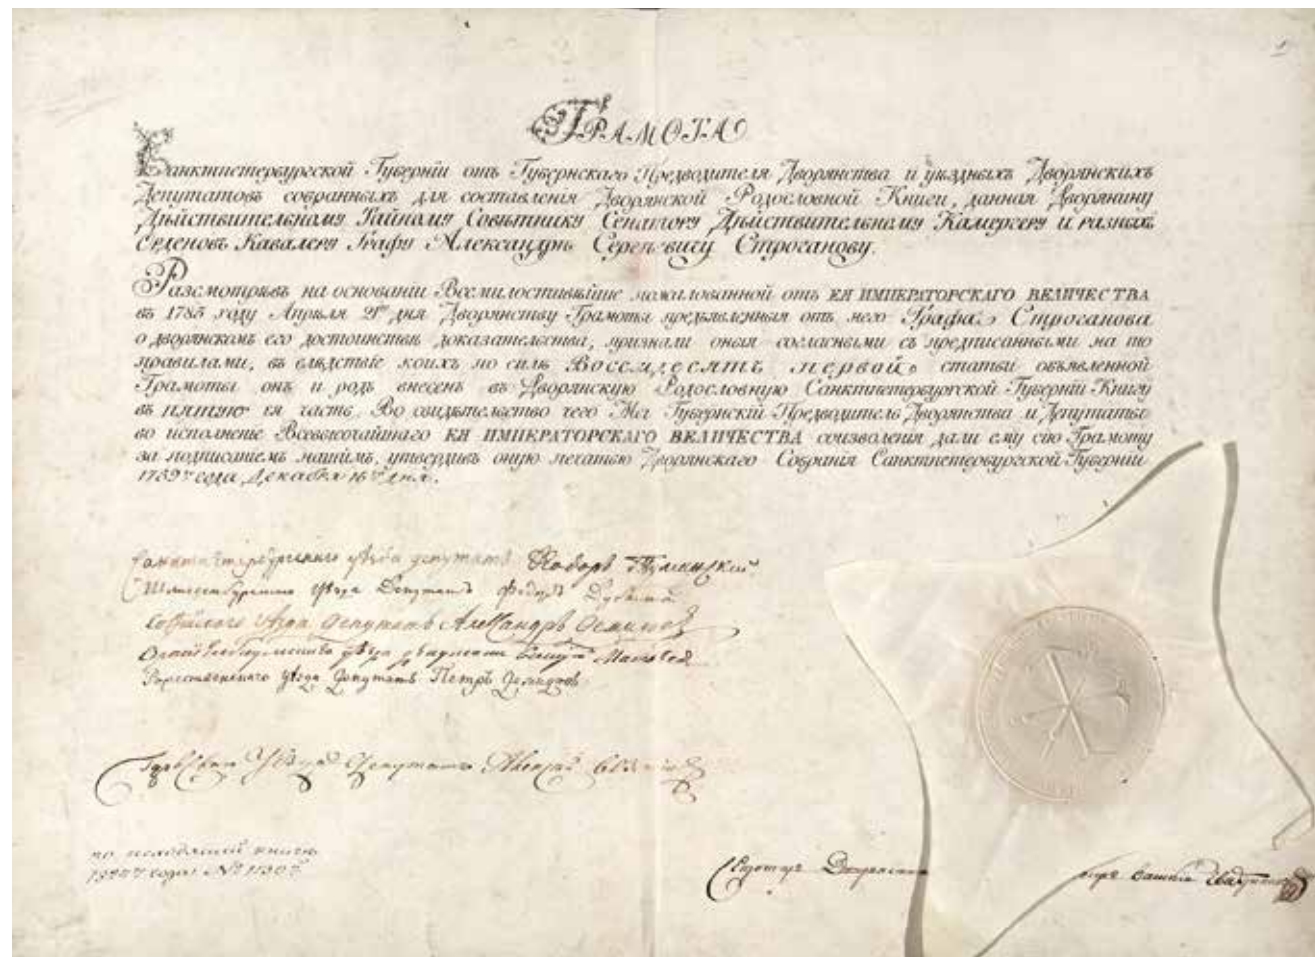 ГРАМОТА
Санктпетербургской Губерніи отъ Губернскаго Предводителя Дворянства и уѣздныхъ Дворянскихъ
Депутатовъ собранныхъ для составленія Дворянской Родословной Книги, данная Дворянину
Дѣйствительному Тайному Совѣтнику Сенатору Дѣйствительному Камергеру и разныхъ
Орденовъ Кавалеру Графу Александръ Сергѣевичу Строганову.
Разсмотрѣвъ на основаніи Всемилостивѣйше пожалованной отъ ЕЯ ИМПЕРАТОРСКАГО ВЕЛИЧЕСТВА
въ 1785 году Апрѣля 21го дня Дворянству Грамоты предъявленныя отъ него Графа Строганова
о дворянскомъ его достоинствѣ доказательства, признали оныя согласными съ предписанными на то
правилами, въ слѣдствіе коихъ по силѣ Восемдесятъ первой статьи объявленной
Грамоты онъ и родъ внесенъ въ Дворянскую Родословную Санктпетербургской Губерніи Книгу
въ пятую ея часть. Во свидѣтельство чего Мы Губернскій Предводитель Дворянства и Депутаты
во исполненіе Всевысочайшаго ЕЯ ИМПЕРАТОРСКАГО ВЕЛИЧЕСТВА соизволенія дали ему сію Грамоту
за подписаніемъ нашимъ, утвердивъ оную печатью Дворянскаго Собранія Санктпетербургской Губерніи
1789го года, Декабря 16го дня.
Санктпетербургскаго уѣзда депутатъ Ѳедоръ Туманскій
уѣзда Депутатъ Федоръ
Софійскаго уѣзда Депутатъ Александръ
уѣзда
Рожественскаго уѣзда Депутатъ Петръ Демидовъ
уѣзда Депутатъ
по исходящей книгѣ
года №
Секретарь